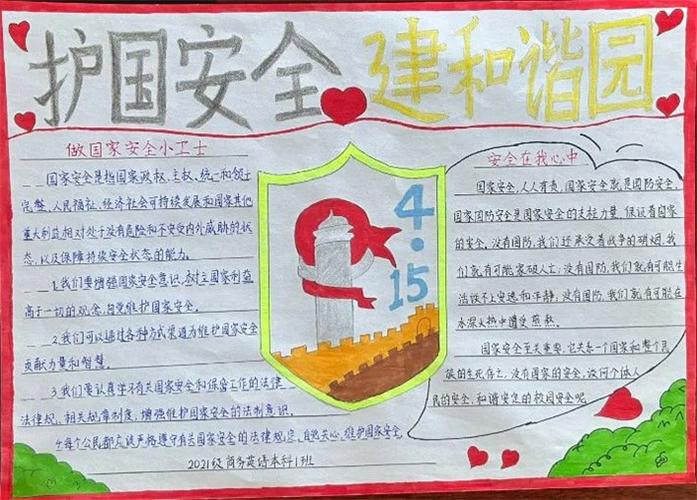 护国安全 建和谐园
做国家安全小卫士
国家安全是指国家政权、主权、统一和领土
完整、人民福祉、经济社会可持续发展和国家其他
重大利益相对处于没有危险和不受内外威胁的状
态,以及保障持续安全状态的能力。
1.我们要增强国家安全意识,树立国家利益
高于一切的观念,自觉维护国家安全。
2.我们可以通过各种方式渠道为维护国家安全
贡献力量和智慧。
3.我们要认真学习有关国家安全和保密工作的法律
法规、相关规章制度,增强维护国家安全的法制意识。
4.每个公民都应该严格遵守有关国家安全的法律规定,自觉关心、维护国家安全。
2021级商务英语本科1班
4·15
安全在我心中
国家安全,人人有责,国家安全就是国防安全,
国家国防安全是国家安全的支柱力量,保证着国家
的安全,没有国防,我们还承受着战争的硝烟,我
们就有可能家破人亡;没有国防,我们就有可能生
活得不上安逸和平静;没有国防,我们就有可能在
水深火热中遭受煎熬。
国家安全至关重要,它关系一个国家和整个民
族的生死存亡,没有国家的安全,谈何个体人
民的安全,和谐安定的校园安全呢